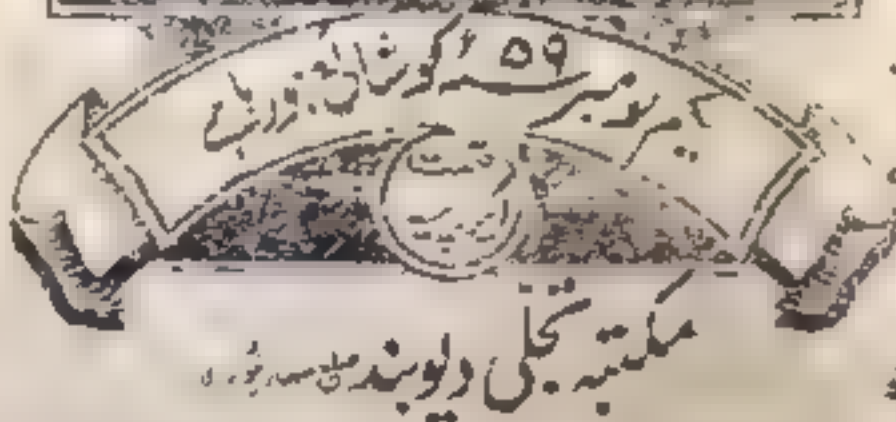 یکم نومبر ۵۹ء کو شائع ہو رہا ہے
مکتبہ تجلی دیوبند ضلع سہارنپور